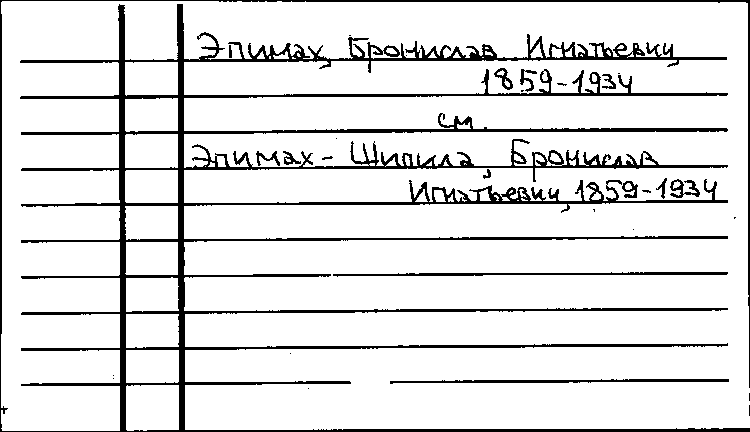 Эпимах, Бронислав Игнатьевич,
1859-1934
см.
Эпимах-Шипила, Бронислав
Игнатьевич, 1859-1934